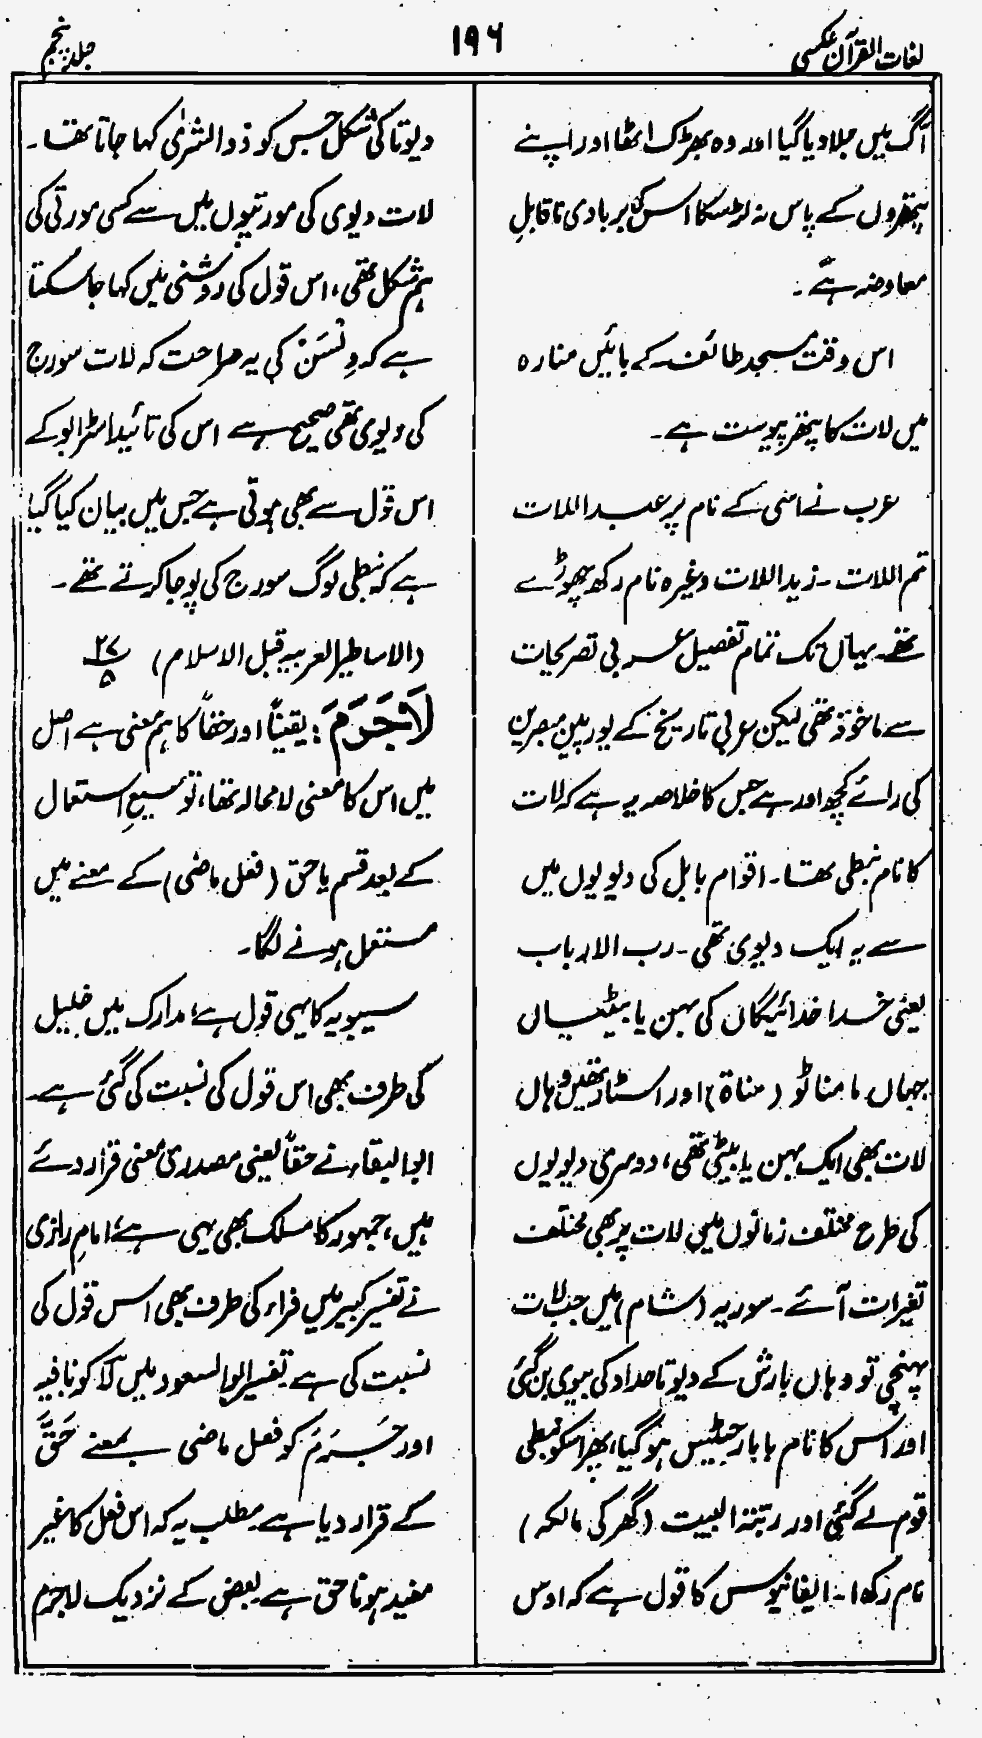 لغات القرآن عکسی
۱۹۶
جلد پنجم
آگ میں جلا دیا گیا اور وہ بھڑک اٹھا اور اپنے
پتھروں کے پاس نہ لڑ سکا اس کی بربادی ناقابلِ
معاوضہ ہے۔
اس وقت مسجد طائف کے بائیں منارہ
میں لات کا پتھر پیوست ہے۔
عرب نے اسی کے نام پر عبد اللات
تم اللات ۔ زید اللات وغیرہ نام رکھ چھوڑے
تھے یہاں تک تمام تفصیل عربی تصریحات
سے ماخوذ تھی لیکن عربی تاریخ کے یورپین مبصرین
کی رائے کچھ اور ہے جس کا خلاصہ یہ ہے کہ لات
کا نام نبطی تھا۔ اقوام بابل کی دیویوں میں
سے یہ ایک دیوی تھی ۔ رب الارباب
یعنی خدا خدائیگان کی بہن یا بیٹیاں
جہاں مامناٹو (مناة) اور اسٹار تھیں وہاں
لات بھی ایک بہن یا بیٹی تھی، دوسری دیویوں
کی طرح مختلف زمانوں میں لات پر بھی مختلف
تغیرات آئے ۔ سوریہ (شام) میں جب لات
پہنچی تو وہاں بارش کے دیوتا حداد کی بیوی بن گئی
اور اس کا نام ہابارجٹیس ہو گیا، پھر اسکو نبطی
قوم لے گئی اور ربۃ البیت (گھر کی مالکہ)
نام رکھا۔ ایفانیوس کا قول ہے کہ اوس
دیوتا کی شکل جس کو ذوالشریٰ کہا جاتا تھا۔
لات دیوی کی مورتیوں میں سے کسی مورتی کی
ہم شکل تھی، اس قول کی روشنی میں کہا جا سکتا
ہے کہ وِنْسَنْ کی یہ صراحت کہ لات سورج
کی دیوی تھی صحیح ہے اس کی تائید اسٹرابو کے
اس قول سے بھی ہوتی ہے جس میں بیان کیا گیا
ہے کہ نبطی لوگ سورج کی پوجا کرتے تھے۔
(الاساطیر العربیہ قبل الاسلام) ۲۷/۵
لَاجَرَمَ : یقیناً اور حقاً کا ہم معنی ہے اصل
میں اس کا معنی لامحالہ تھا، توسیعِ استعمال
کے بعد قسم یا حق (فعل ماضی) کے معنے میں
مستعمل ہونے لگا۔
سیبویہ کا یہی قول ہے، مدارک میں خلیل
کی طرف بھی اس قول کی نسبت کی گئی ہے۔
ابوالبقاء نے حقاً یعنی مصدری معنی قرار دئے
ہیں، جمہور کا مسلک بھی یہی ہے، امام رازی
نے تفسیر کبیر میں فراء کی طرف بھی اس قول کی
نسبت کی ہے تفسیر ابوالسعود میں لَا کو نافیہ
اور جَرَمَ کو فعل ماضی بمعنے حَقَّ
کے قرار دیا ہے مطلب یہ کہ اس فعل کا غیر
مفید ہونا حق ہے بعض کے نزدیک لاجرم